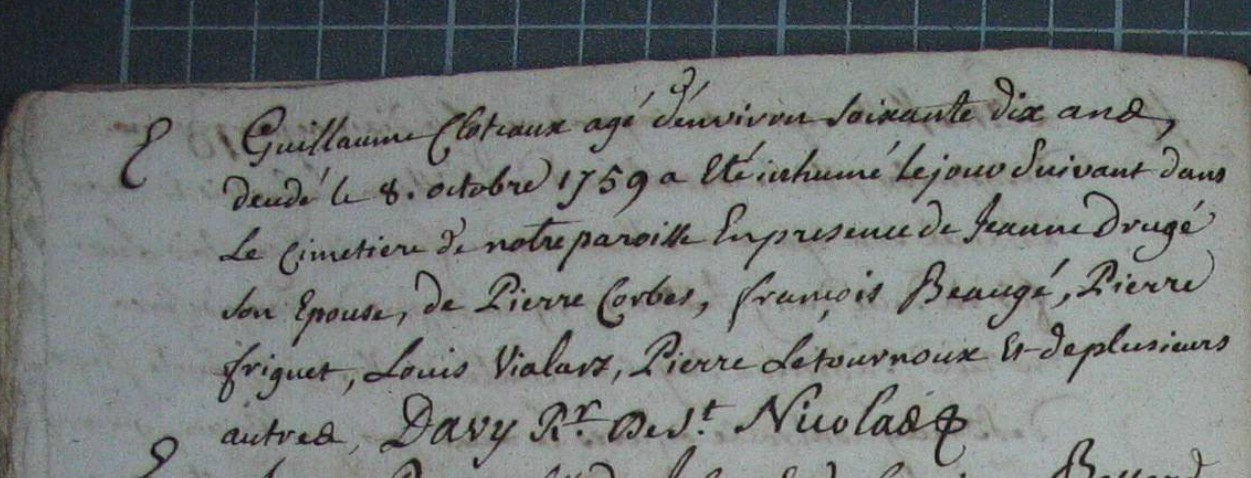 Guillaume Cloteaux agé d'environ soixante dix ans,
decedé le 8. octobre 1759 a Eté inhumé le jour suivant dans
Le Cimetiere de notre paroisse En presence de Jeanne Drugé
son Epouse, de Pierre Corbes, françois Beaugé, Pierre
friquet, Louis Vialars, Pierre Letournoux Et de plusieurs
autres, Davy Rr. De St. Nicolas